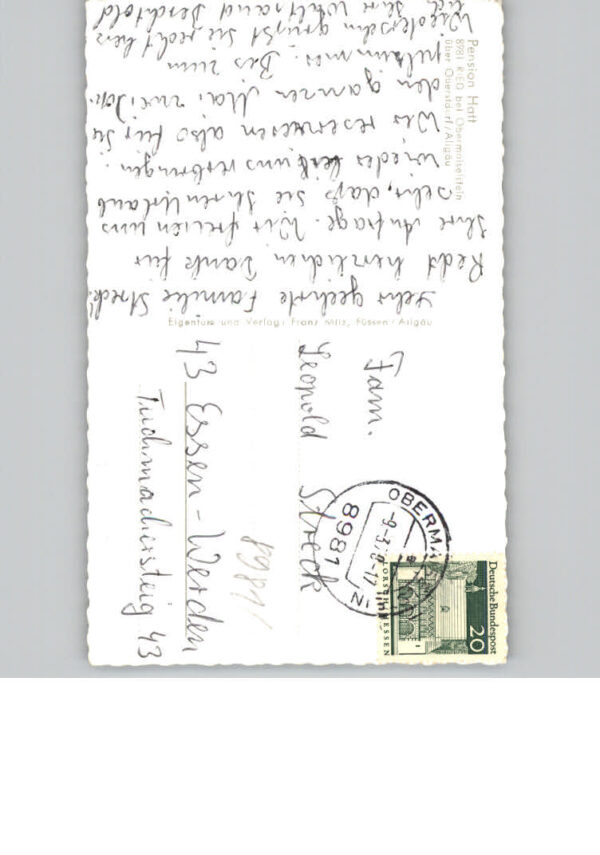 Pension Haft
8981 RIED bei Obermaiselstein
über Oberstdorf/Allgäu
Sehr geehrte Familie Streck!
Recht herzlichen Dank für
Ihre Anfrage. Wir freuen uns
sehr, dass Sie Ihren Urlaub
wieder bei uns verbringen.
Wir reservieren also für Sie
den ganzen Mai zwei Dop-
pelzimmer. Bis zum
Wiedersehn grüßt Sie recht herz
lich Ihre Waltraud Berchtold
Eigentum und Verlag: Franz Milz, Füssen-Allgäu
Deutsche Bundespost
20
LORSCH/HESSEN
OBERMA
8981
Fam.
Leopold Streck
8981
43 Essen-Werden
Tuchmachersteig 43